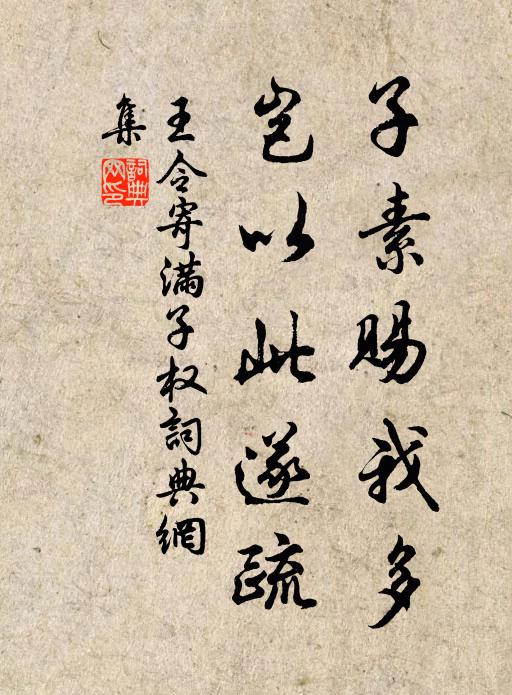 子素賜我多
豈以此遂疏
王令寄滿子权詞典網
集
詞典網印